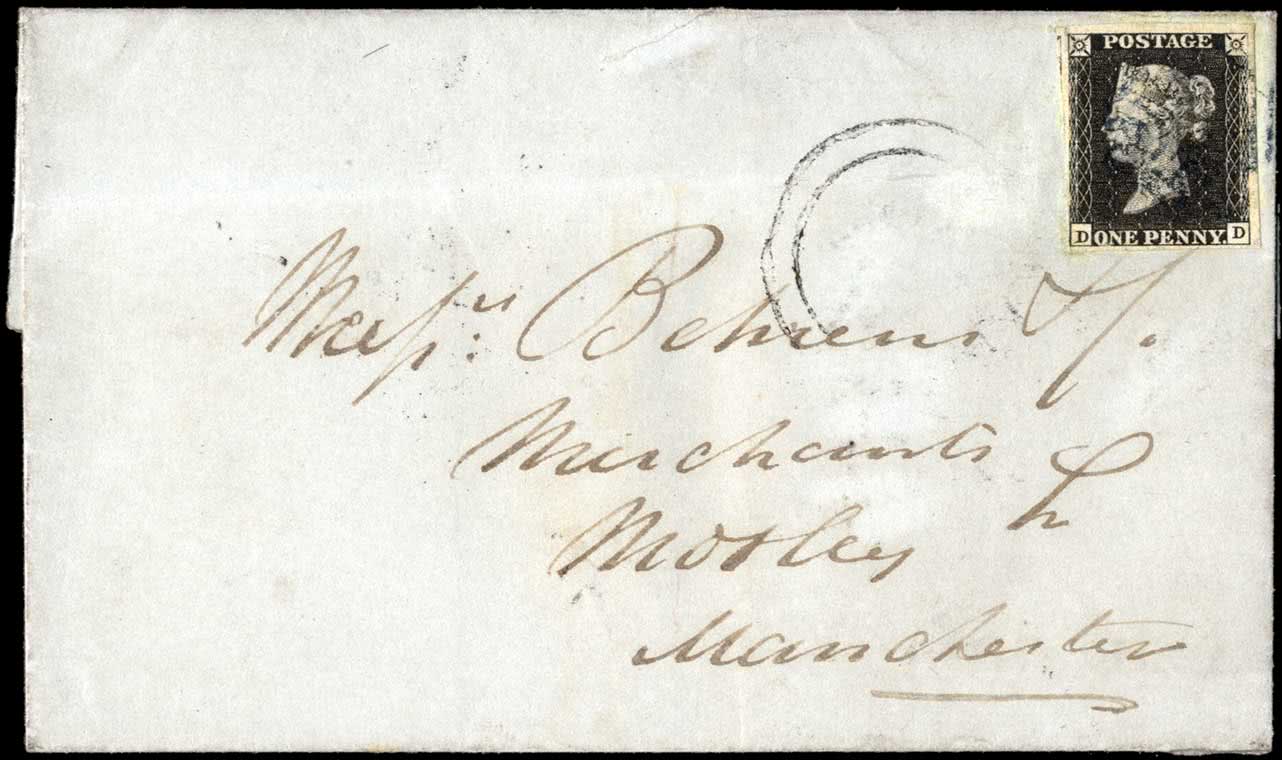 POSTAGE
D ONE PENNY. D
Messrs: Behrens & Co.
Merchants
Mosley St
Manchester